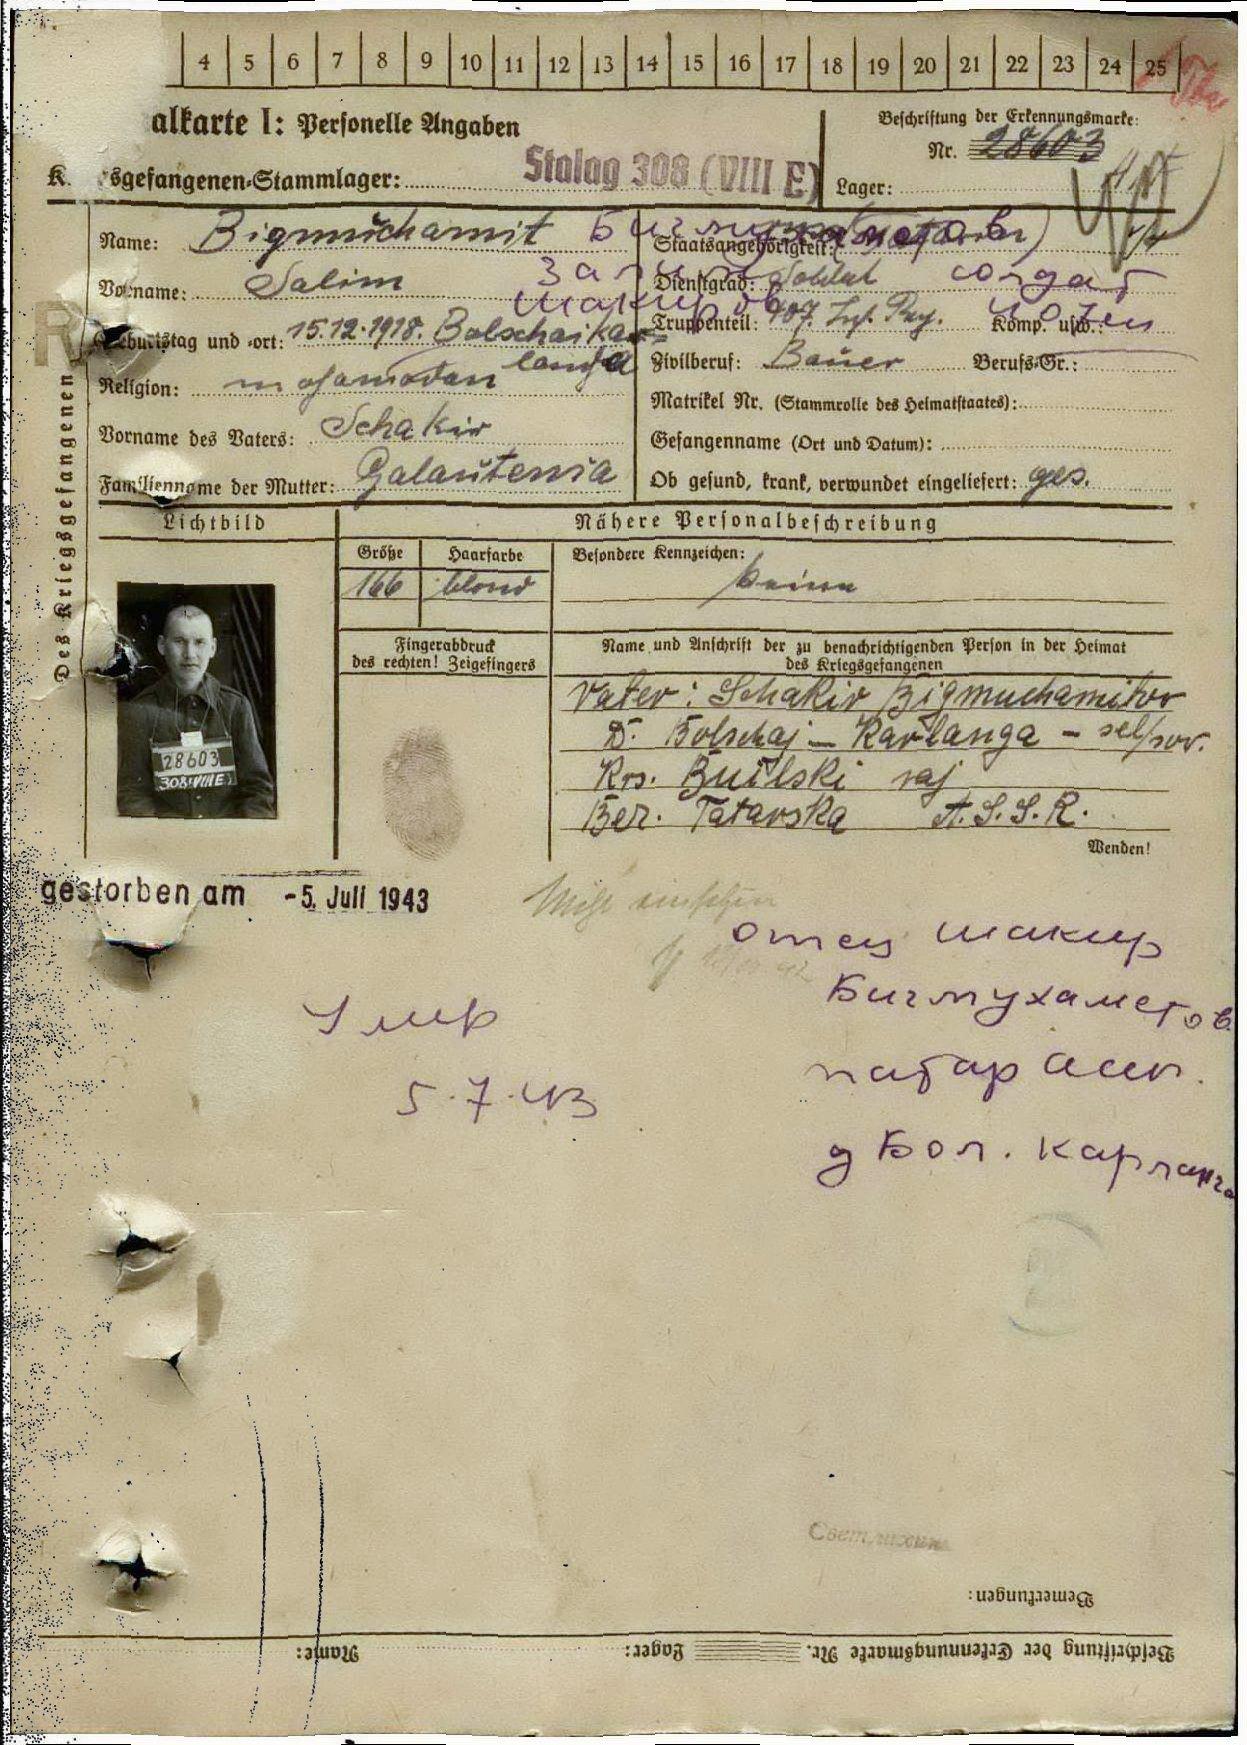 4 5 6 7 8 9 10 11 12 13 14 15 16 17 18 19 20 21 22 23 24 25
alkarte I: Personelle Angaben
Beschriftung der Erkennungsmarke:
Nr. 28603
K sgefangenen-Stammlager: Stalag 308 (VIII E)
Lager:
Des Kriegsgefangenen
Name: Bigmuchamit
Staatsangehörigkeit:
Vorname: Salim
Dienstgrad: Soldat солдат
Шакиров
Truppenteil: 407. Inf. Reg. Komp. usw.: 407 сп
Geburtstag und -ort: 15.12.1918. Bolschaikar=
langa
Zivilberuf: Bauer Berufs-Gr.:
Religion: mohamedan
Matrikel Nr. (Stammrolle des Heimatstaates):
Vorname des Vaters: Schakir
Gefangenname (Ort und Datum):
Familienname der Mutter: Galautenia
Ob gesund, krank, verwundet eingeliefert: ges.
Lichtbild
Nähere Personalbeschreibung
Größe Haarfarbe Besondere Kennzeichen:
166 blond keine
Fingerabdruck
des rechten! Zeigefingers
Name und Anschrift der zu benachrichtigenden Person in der Heimat
des Kriegsgefangenen
Vater: Schakir Bigmuchamitov
D. Bolschaj – Karlanga – sel/sov.
Krs. Builski raj
Ber. Tatarska A.S.S.R.
28603
308(VIII E)
Wenden!
gestorben am -5. Juli 1943
отец Шакир
Бигмухаметов
Умер
татар асср.
5.7.43
д Бол. Карланга
Bemerkungen:
Name: Lager: Beschriftung der Erkennungsmarke Nr.